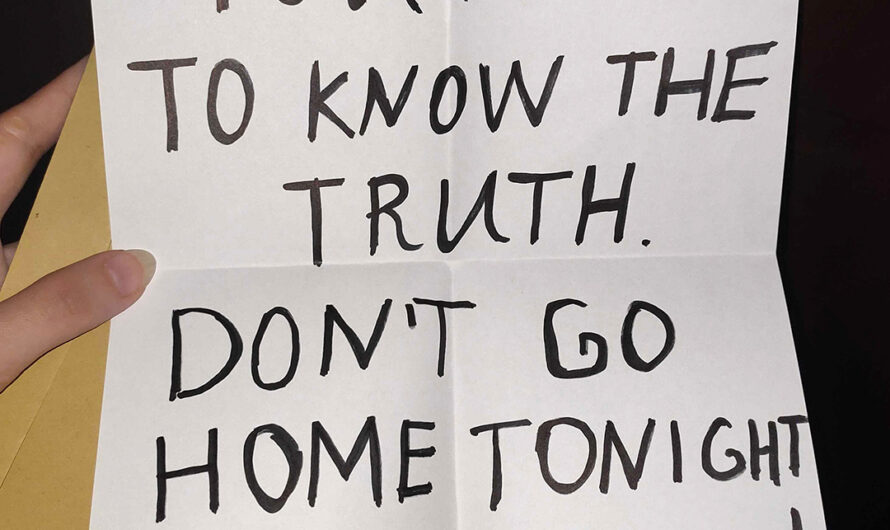 TO KNOW THE
TRUTH.
DON'T GO
HOME TONIGHT